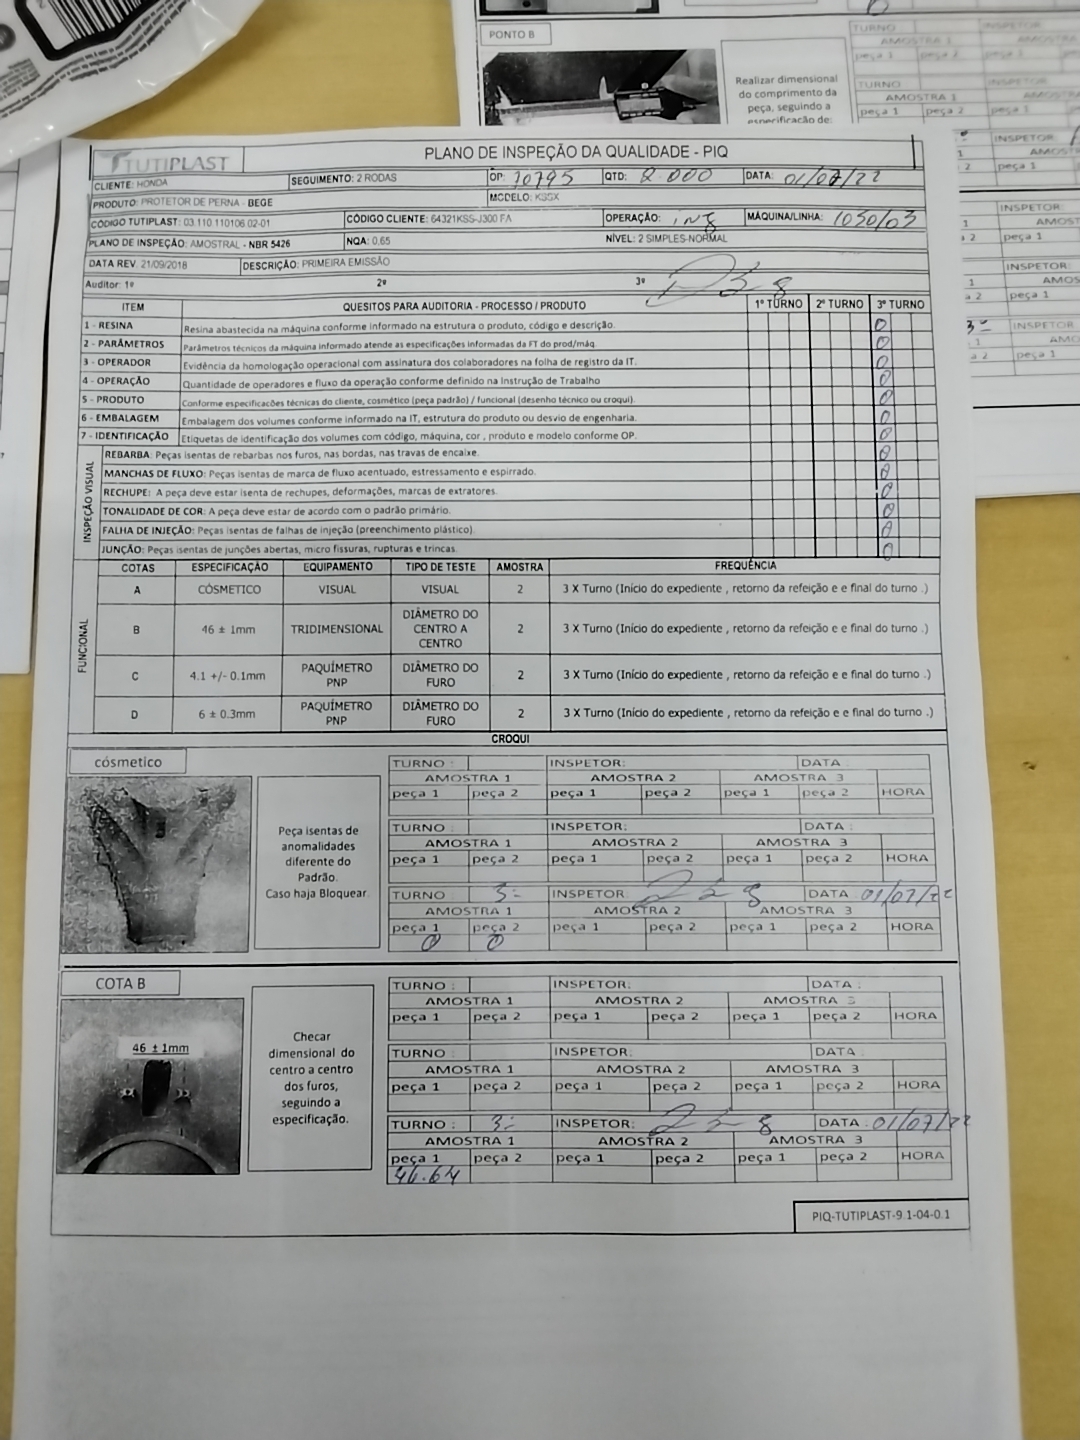 PONTO B
Realizar dimensional
do comprimento da
peça, seguindo a
especificação de:
TURNO
AMOSTRA 1
peça 1 peça 2
TURNO
AMOSTRA 1
peça 1 peça 2
INSPETOR
peça 1
INSPETOR:
AMOST
peça 1
INSPETOR:
AMOS
peça 1
INSPETOR
AMO
peça 1
TUTIPLAST
PLANO DE INSPEÇÃO DA QUALIDADE - PIQ
CLIENTE: HONDA SEGUIMENTO: 2 RODAS OP: 70795 QTD: 2.000 DATA: 01/07/22
PRODUTO: PROTETOR DE PERNA - BEGE MODELO: KSSX
CÓDIGO TUTIPLAST: 03.110.110106.02-01 CÓDIGO CLIENTE: 64321KSS-J300 FA OPERAÇÃO: INJ MÁQUINA/LINHA: 1030/03
PLANO DE INSPEÇÃO: AMOSTRAL - NBR 5426 NQA: 0,65 NÍVEL: 2 SIMPLES-NORMAL
DATA REV. 21/09/2018 DESCRIÇÃO: PRIMEIRA EMISSÃO
Auditor: 1º 2º 3º
ITEM QUESITOS PARA AUDITORIA - PROCESSO / PRODUTO 1º TURNO 2º TURNO 3º TURNO
1 - RESINA Resina abastecida na máquina conforme informado na estrutura o produto, código e descrição. 0
2 - PARÂMETROS Parâmetros técnicos da máquina informado atende as especificações informadas da FT do prod/máq. 0
3 - OPERADOR Evidência da homologação operacional com assinatura dos colaboradores na folha de registro da IT. 0
4 - OPERAÇÃO Quantidade de operadores e fluxo da operação conforme definido na Instrução de Trabalho 0
5 - PRODUTO Conforme especificacões técnicas do cliente, cosmético (peça padrão) / funcional (desenho técnico ou croqui). 0
6 - EMBALAGEM Embalagem dos volumes conforme informado na IT, estrutura do produto ou desvio de engenharia. 0
7 - IDENTIFICAÇÃO Etiquetas de identificação dos volumes com código, máquina, cor , produto e modelo conforme OP. 0
INSPEÇÃO VISUAL
REBARBA: Peças isentas de rebarbas nos furos, nas bordas, nas travas de encaixe. 0
MANCHAS DE FLUXO: Peças isentas de marca de fluxo acentuado, estressamento e espirrado. 0
RECHUPE: A peça deve estar isenta de rechupes, deformações, marcas de extratores. 0
TONALIDADE DE COR: A peça deve estar de acordo com o padrão primário. 0
FALHA DE INJEÇÃO: Peças isentas de falhas de injeção (preenchimento plástico). 0
JUNÇÃO: Peças isentas de junções abertas, micro fissuras, rupturas e trincas. 0
FUNCIONAL
COTAS ESPECIFICAÇÃO EQUIPAMENTO TIPO DE TESTE AMOSTRA FREQUÊNCIA
A CÓSMETICO VISUAL VISUAL 2 3 X Turno (Início do expediente , retorno da refeição e e final do turno .)
B 46 ± 1mm TRIDIMENSIONAL DIÂMETRO DO CENTRO A CENTRO 2 3 X Turno (Início do expediente , retorno da refeição e e final do turno .)
C 4.1 +/- 0.1mm PAQUÍMETRO PNP DIÂMETRO DO FURO 2 3 X Turno (Início do expediente , retorno da refeição e e final do turno .)
D 6 ± 0.3mm PAQUÍMETRO PNP DIÂMETRO DO FURO 2 3 X Turno (Início do expediente , retorno da refeição e e final do turno .)
CROQUI
cósmetico
Peça isentas de
anomalidades
diferente do
Padrão.
Caso haja Bloquear.
TURNO : INSPETOR: DATA :
AMOSTRA 1 AMOSTRA 2 AMOSTRA 3
peça 1 peça 2 peça 1 peça 2 peça 1 peça 2 HORA
TURNO : INSPETOR: DATA :
AMOSTRA 1 AMOSTRA 2 AMOSTRA 3
peça 1 peça 2 peça 1 peça 2 peça 1 peça 2 HORA
TURNO 3º INSPETOR DATA 01/07/22
AMOSTRA 1 AMOSTRA 2 AMOSTRA 3
peça 1 peça 2 peça 1 peça 2 peça 1 peça 2 HORA
0 0
COTA B
46 ± 1mm
Checar
dimensional do
centro a centro
dos furos,
seguindo a
especificação.
TURNO : INSPETOR: DATA :
AMOSTRA 1 AMOSTRA 2 AMOSTRA 3
peça 1 peça 2 peça 1 peça 2 peça 1 peça 2 HORA
TURNO : INSPETOR: DATA :
AMOSTRA 1 AMOSTRA 2 AMOSTRA 3
peça 1 peça 2 peça 1 peça 2 peça 1 peça 2 HORA
TURNO : 3º INSPETOR: DATA : 01/07/22
AMOSTRA 1 AMOSTRA 2 AMOSTRA 3
peça 1 peça 2 peça 1 peça 2 peça 1 peça 2 HORA
46.64
PIQ-TUTIPLAST-9.1-04-0.1